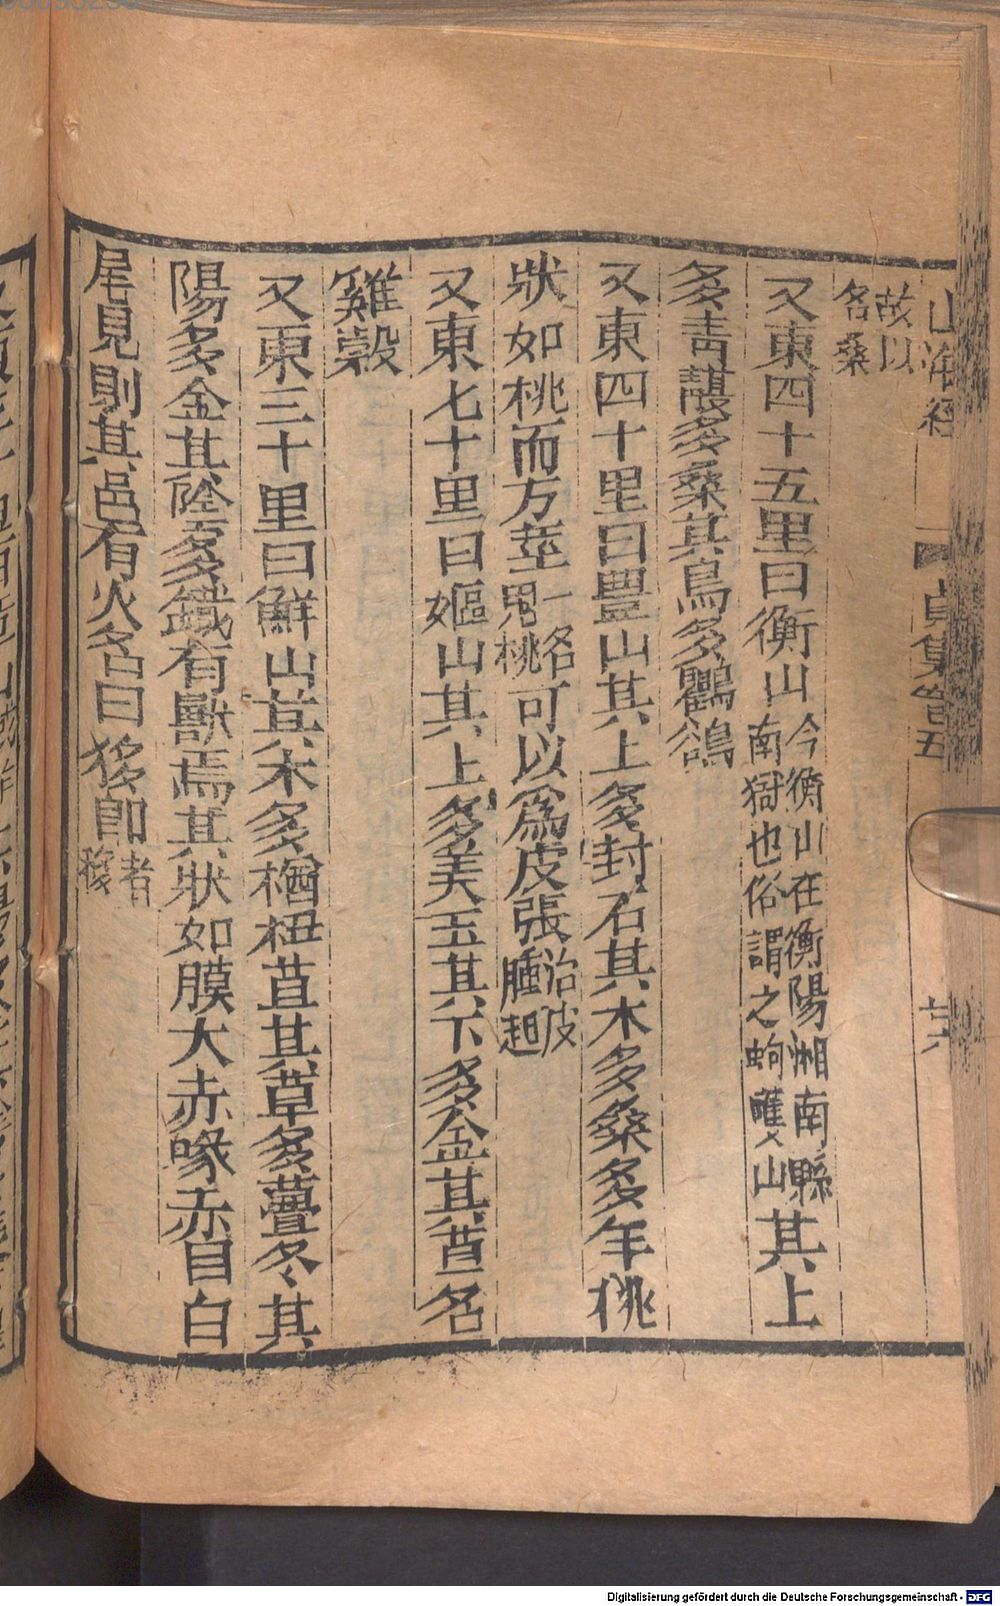 山海經
貞集卷五
廿六
故以
名桑
又東四十五里曰衡山今衡山在衡陽湘南縣南嶽也俗謂之岣嶁山其上
多青䨼多桑其鳥多鸜鵒
又東四十里曰豊山其上多封石其木多桑多羊桃
狀如桃而方莖一名鬼桃可以爲皮張治皮腫起
又東七十里曰嫗山其上多美玉其下多金其草名
雞糓
又東三十里曰鮮山其木多楢杻苴其草多虋冬其
陽多金其陰多鐵有獸焉其狀如膜大赤喙赤目白
尾見則其邑有火名曰㺄即
Digitalisierung gefördert durch die Deutsche Forschungsgemeinschaft - DFG